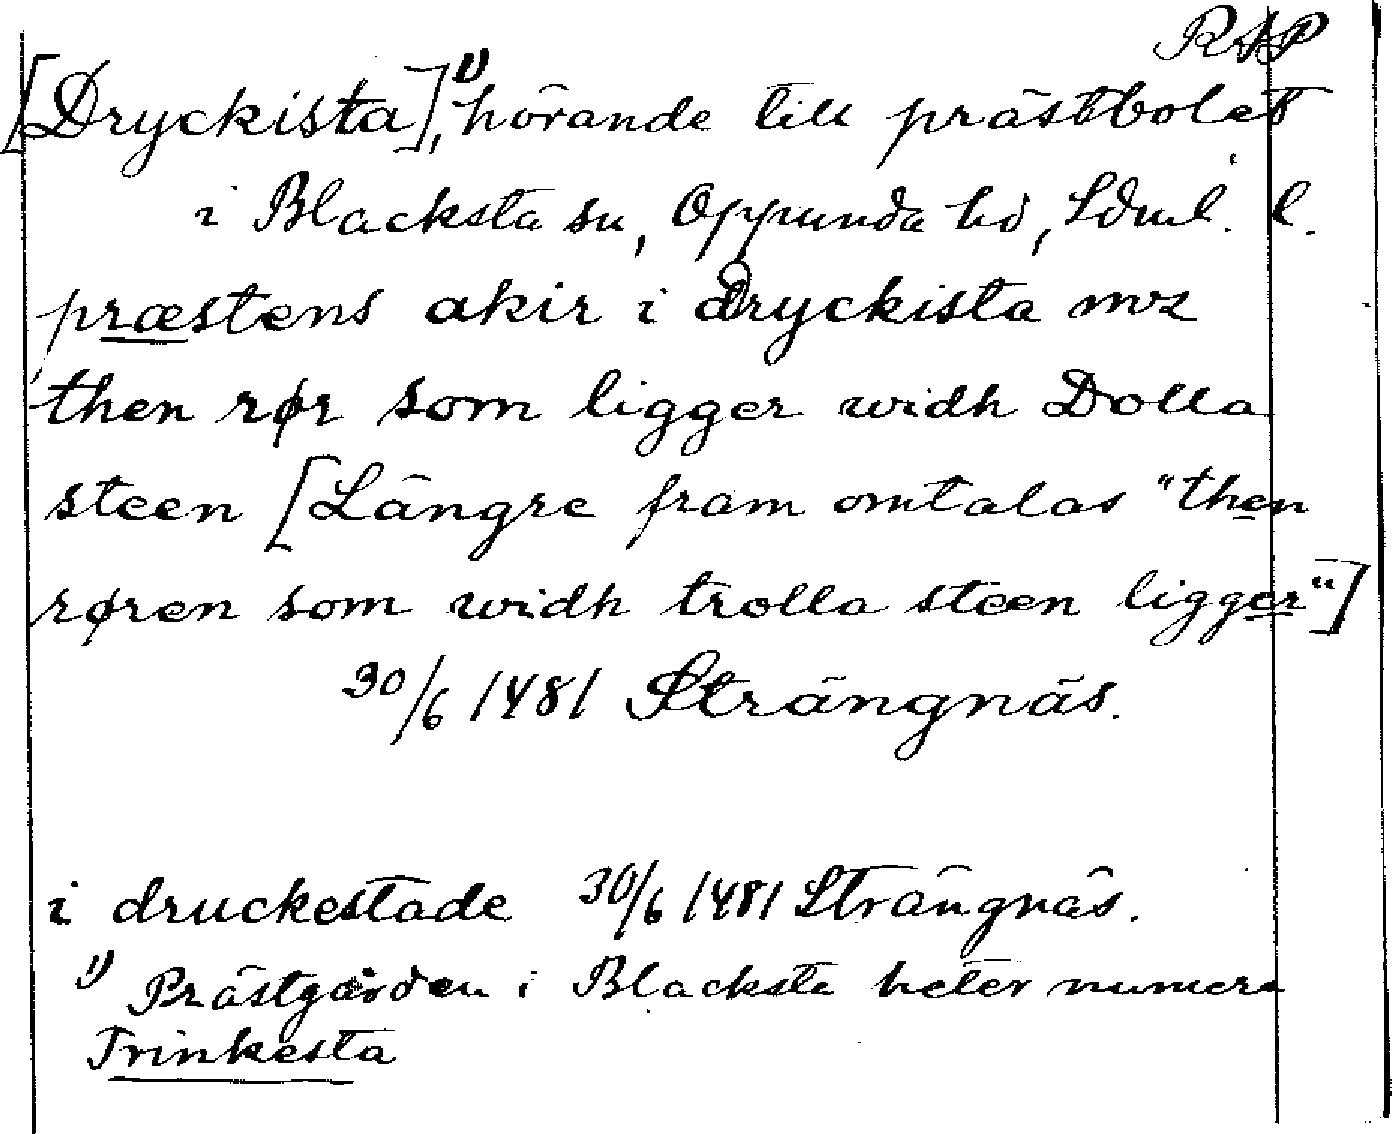 RAP
[Dryckista],¹⁾ hörande till prästbolet
i Blacksta sn, Oppunda hd, Sdml. l.
præstens akir i dryckista mz
then rør som ligger widh Dolla
steen [Längre fram omtalas "then
røren som widh trolla steen ligger"]
30/6 1481 Strängnäs.
i druckestade 30/6 1481 Strängnäs.
¹⁾ Prästgården i Blacksta heter numera
Trinkesta